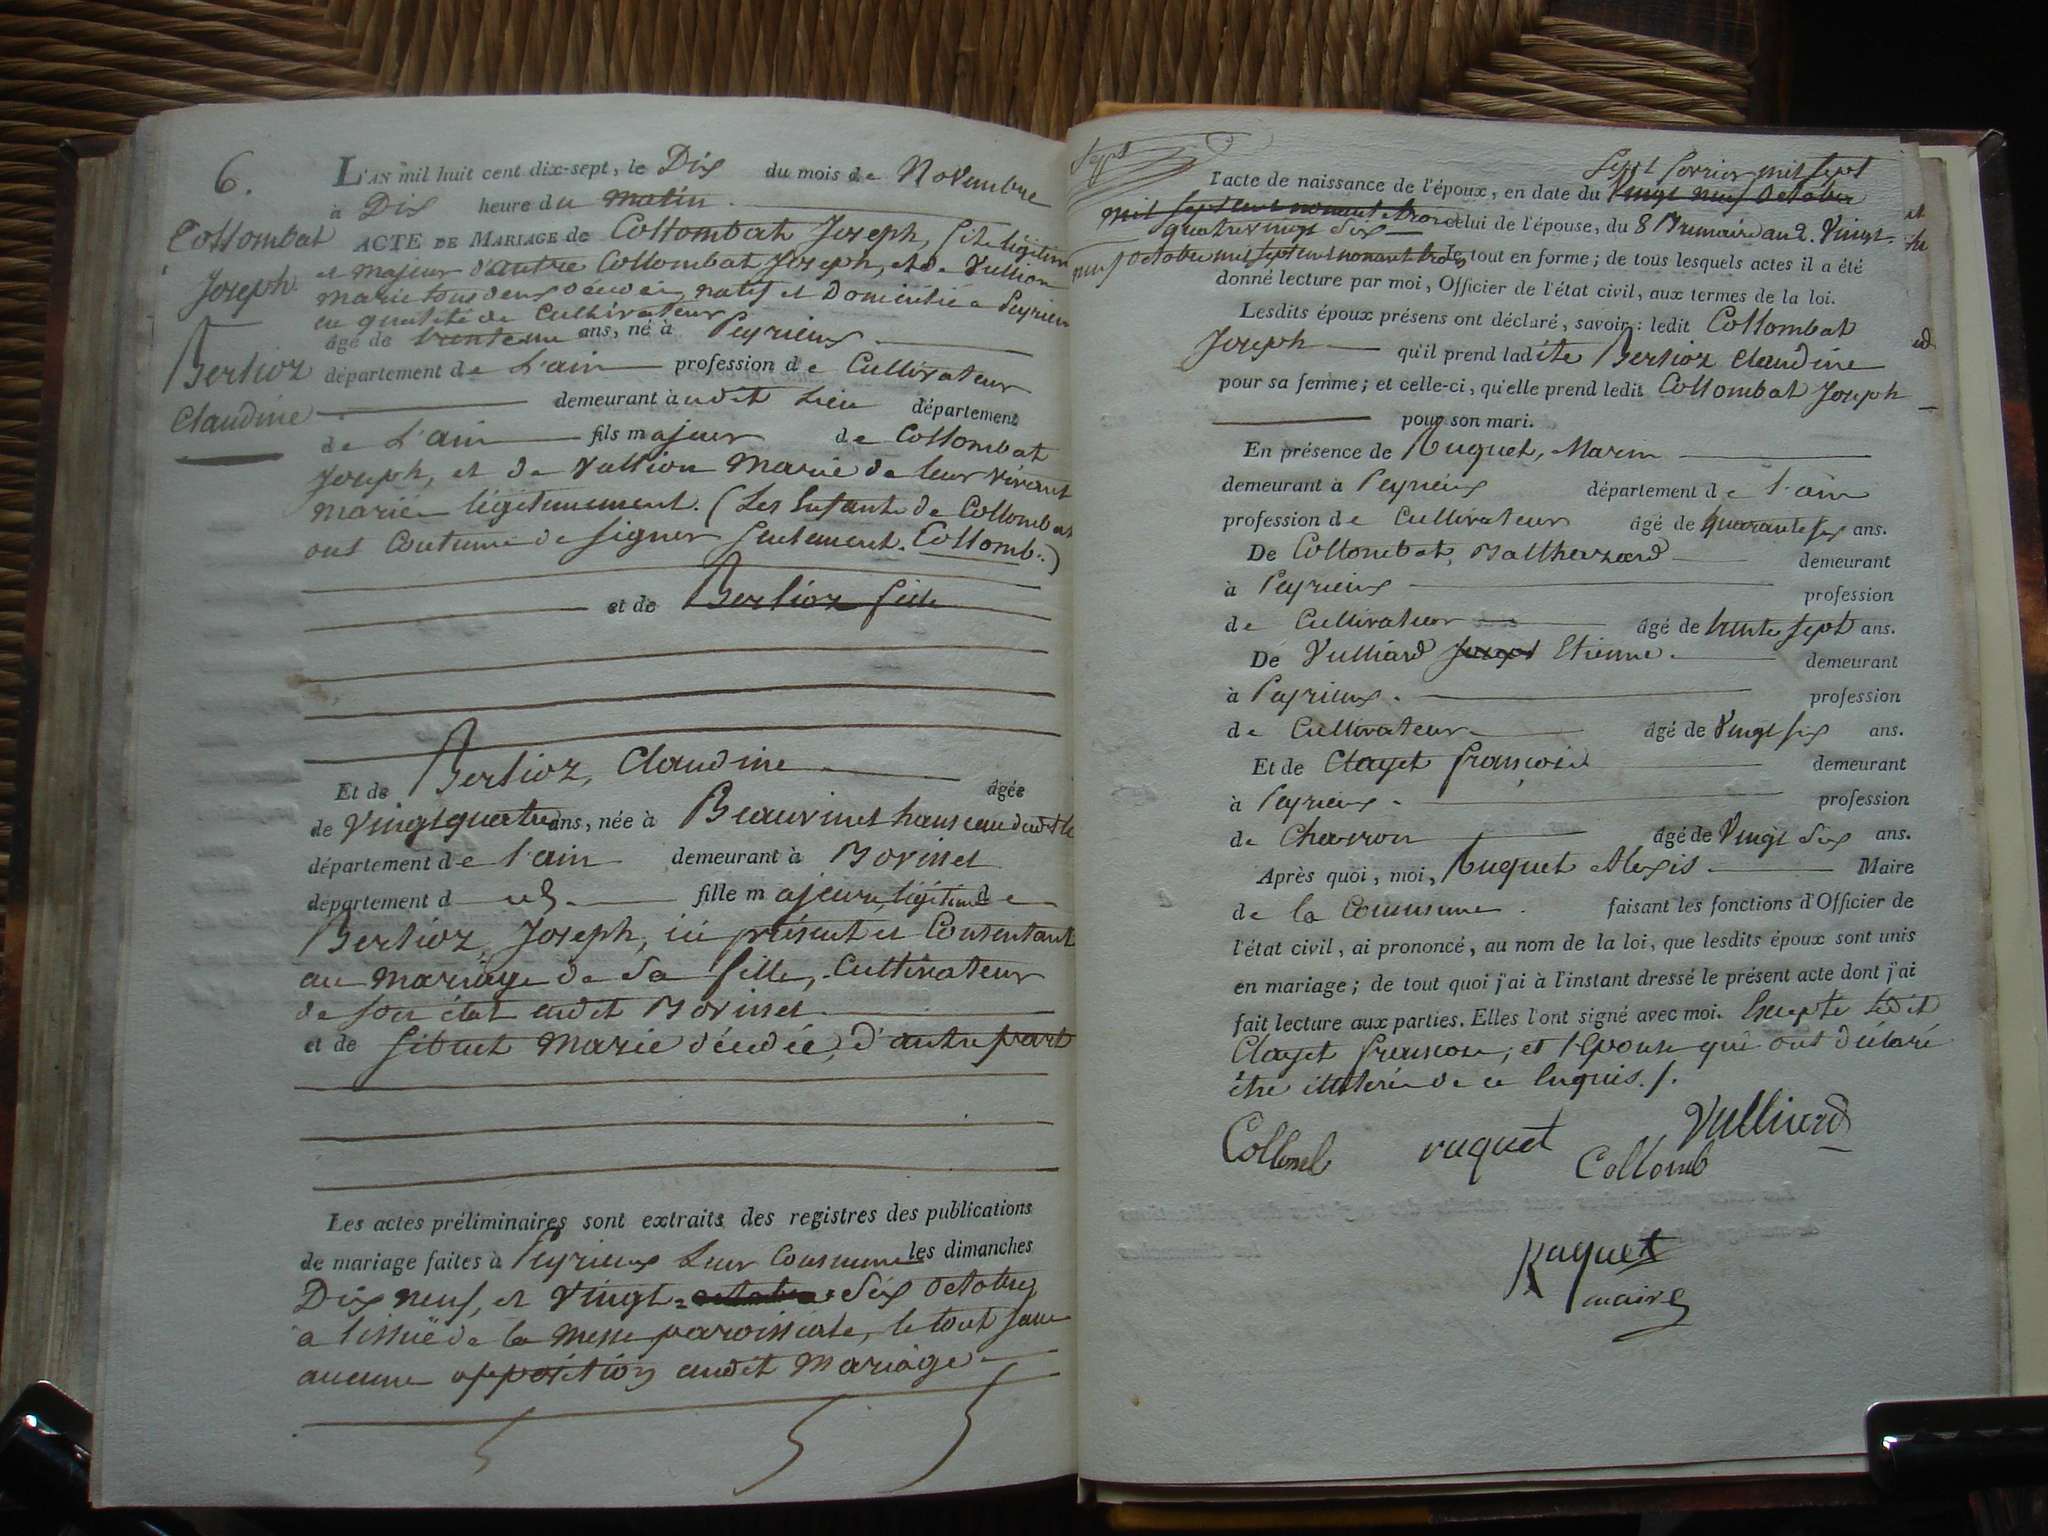 6.
L'AN mil huit cent dix-sept, le Dix du mois de Novembre
à Dix heure du matin
Collombat
Joseph
Berlioz
Claudine
ACTE DE MARIAGE de Collombat Joseph, fils légitime
et majeur d'autre Collombat Joseph, et de Vullion
Marie tous deux décédés, natif et domicilié a Peyrieu
en qualité de Cultivateur
âgé de trente un ans, né à Peyrieux
département de L'ain profession de Cultivateur
demeurant audit Lieu département
de L'ain fils majeur de Collombat
Joseph, et de Vullion Marie de leur vivant
mariés légitimement. (Les Enfants de Collombat
ont Coutume de signer seulement Collomb.)
et de Berlioz fille
Et de Berlioz, Claudine âgée
de Vingt quatre ans, née à Beauvinet hameau dudit
département de l'ain demeurant à Bovinet
département d ud. fille majeure légitime de
Berlioz, Joseph, ici présent et Consentant
au mariage de Sa fille, Cultivateur
de son état audit Bovinet
et de Sibuet Marie décédée, d'autre part
Les actes préliminaires sont extraits des registres des publications
de mariage faites à Peyrieux Leur Commune les dimanches
Dix neuf, et Vingt octobre Six Octobre
a l'issuë de la Messe paroissiale, le tout sans
aucune opposition audit Mariage
Sept fevrier mil sept
l'acte de naissance de l'époux, en date du Vingt neuf Octobre
mil sept cent nonante trois celui de l'épouse, du 8 Brumaire an 2. Vingt
quatrevingt Six
neuf Octobre mil sept cent nonante trois Le tout en forme; de tous lesquels actes il a été
donné lecture par moi, Officier de l'état civil, aux termes de la loi.
Lesdits époux présens ont déclaré, savoir: ledit Collombat
Joseph qu'il prend ladite Berlioz Claudine
pour sa femme; et celle-ci, qu'elle prend ledit Collombat Joseph
pour son mari.
En présence de Ruquet, Marin
demeurant à Peyrieux département de l'ain
profession de Cultivateur âgé de quarante six ans.
De Collombat, Balthazard demeurant
à Peyrieux profession
de Cultivateur âgé de trente sept ans.
De Vulliard Joseph Etienne demeurant
à Peyrieux. profession
de Cultivateur âgé de Vingt six ans.
Et de Clayet françois demeurant
à Peyrieux. profession
de Charron âgé de Vingt Six ans.
Après quoi, moi, Ruquet Alexis Maire
de la Commune faisant les fonctions d'Officier de
l'état civil, ai prononcé, au nom de la loi, que lesdits époux sont unis
en mariage; de tout quoi j'ai à l'instant dressé le présent acte dont j'ai
fait lecture aux parties. Elles l'ont signé avec moi. Excepté ledit
Clayet françois, et l'Epouse qui ont déclaré
être illiteré de ce Enquis./.
Collomb ruquet Vulliard
Collomb
Ruquet
maire